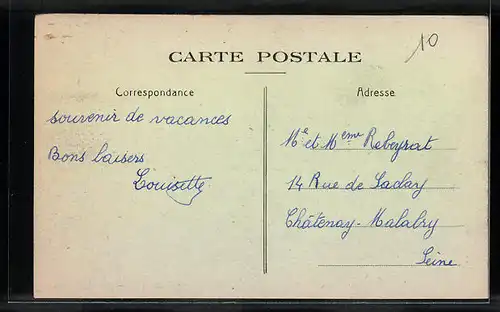 10
CARTE POSTALE
Correspondance
Adresse
souvenir de vacances
Bons baisers
Louisette
Mr et Mme Rebeyrat
14 Rue de Saclay
Châtenay-Malabry
Seine